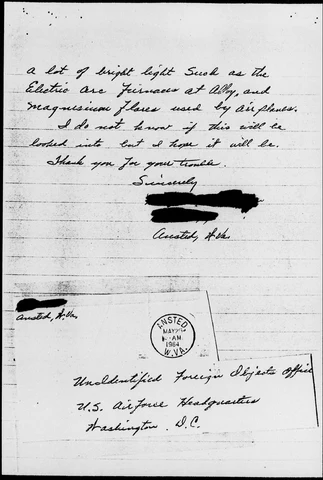 a lot of bright light Such as the
Electric arc furnaces at Alloy, and
Magnesium flares used by airplanes.
I do not know if this will be
looked into but I hope it will be.
Thank you for your trouble.
Sincerely
Ansted, W.Va.
Ansted, W.Va.
ANSTED
MAY
AM
1964
W.VA.
Unidentified Foreign Objects Office
U.S. AirForce Headquarters
Washington D.C.